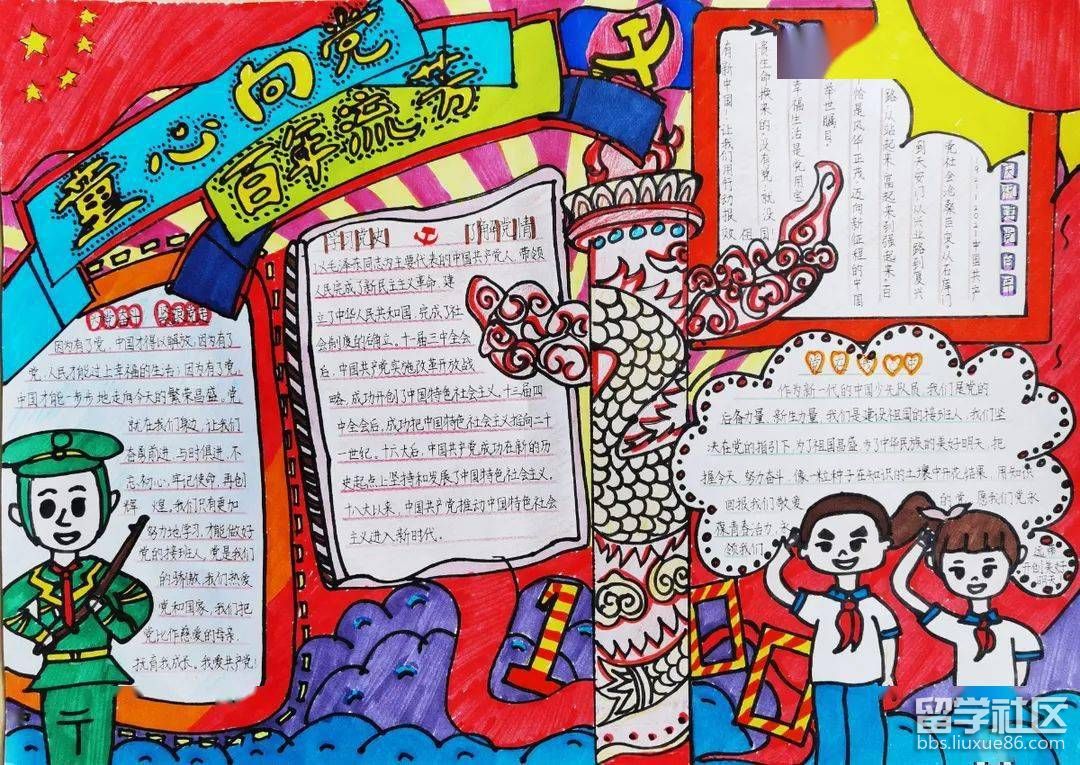 童心向党
百年流芳
学习党史
因为有了党，中国才得以解放，因为有了
党，人民才能过上幸福的生活；因为有了党，
中国才能一步步地走向今天的繁荣昌盛。党
就在我们身边，让我们
奋展前进，与时俱进，不
忘初心，牢记使命，再创
辉煌，我们只有更加
努力地学习，才能做好
党的接班人，党是我们
的骄傲，我们热爱
党和国家，我们把
党比作慈爱的母亲，
抚育我成长，我爱共产党！
以毛泽东同志为主要代表的中国共产党人，带领
人民完成了新民主主义革命，建
立了中华人民共和国，完成了社
会制度的确立，十一届三中全会
后，中国共产党实施改革开放战
略，成功开创了中国特色社会主义，十三届四
中全会后，成功把中国特色社会主义推向二十
一世纪，十六大后，中国共产党成功在新的历
史起点上坚持和发展了中国特色社会主义，
十八大以来，中国共产党推动中国特色社会
主义进入新时代。
1921-2021中国共产
党仕会沧桑巨变，从石库门
到天安门，从兴业路到复兴
路，从站起来，富起来到强起来，百
恰是风华正茂，迈向新征程的中国
举世瞩目。
幸福生活是党用宝
贵生命换来的，没有党，就没
有新中国！让我们用行动报效
祖国！
作为新一代的中国少先队员，我们是党的
后备力量，新生力量，我们是建设祖国的接班人，我们坚
决在党的指引下，为了祖国昌盛，为了中华民族的美好明天，把
握今天，努力奋斗，像一粒种子在知识的土壤中开花结果，用知识
回报我们敬爱的党，愿我们党永
葆青春活力，永
领我们
开创美好
明天
100
留学社区
bbs.liuxue86.com